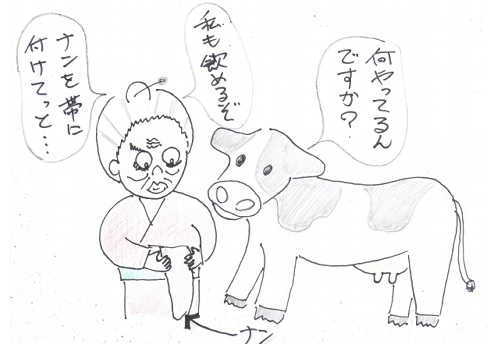 何やってるん
ですか？
私も飲めるぞ
ナンを帯に
付けてっと…
ナン